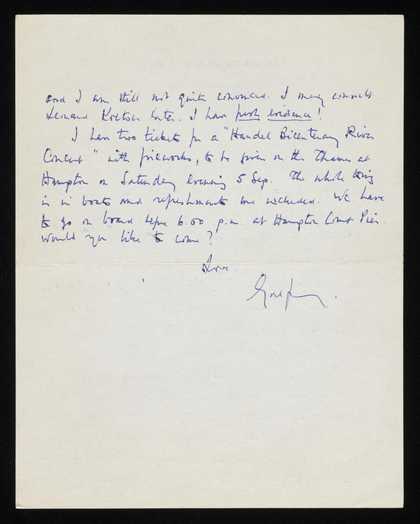 and I am still not quite convinced. I may consult
Leonard Koetser later. I have fresh evidence!
I have two tickets for a "Handel Bicentenary River
Concert" with fireworks, to be given on the Thames at
Hampton on Saturday evening 5 Sep. The whole thing
is in boats and refreshments are included. We have
to go on board before 6.00 p.m. at Hampton Court Pier.
Would you like to come?
Love